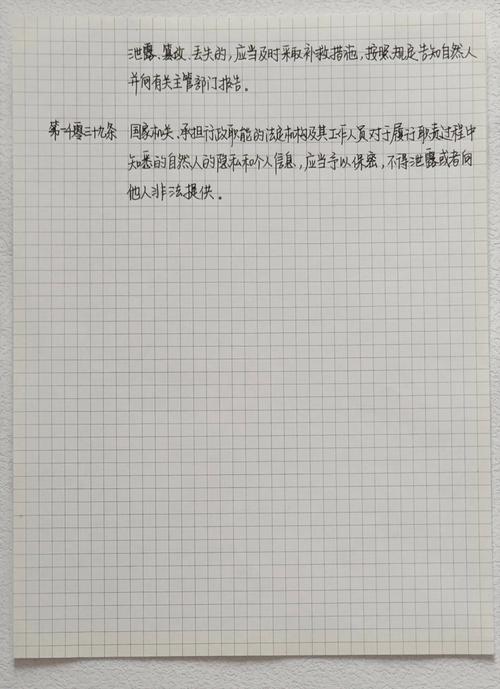 泄露、篡改、丢失的，应当及时采取补救措施，按照规定告知自然人
并向有关主管部门报告。
第一千零三十九条 国家机关、承担行政职能的法定机构及其工作人员对于履行职责过程中
知悉的自然人的隐私和个人信息，应当予以保密，不得泄露或者向
他人非法提供。